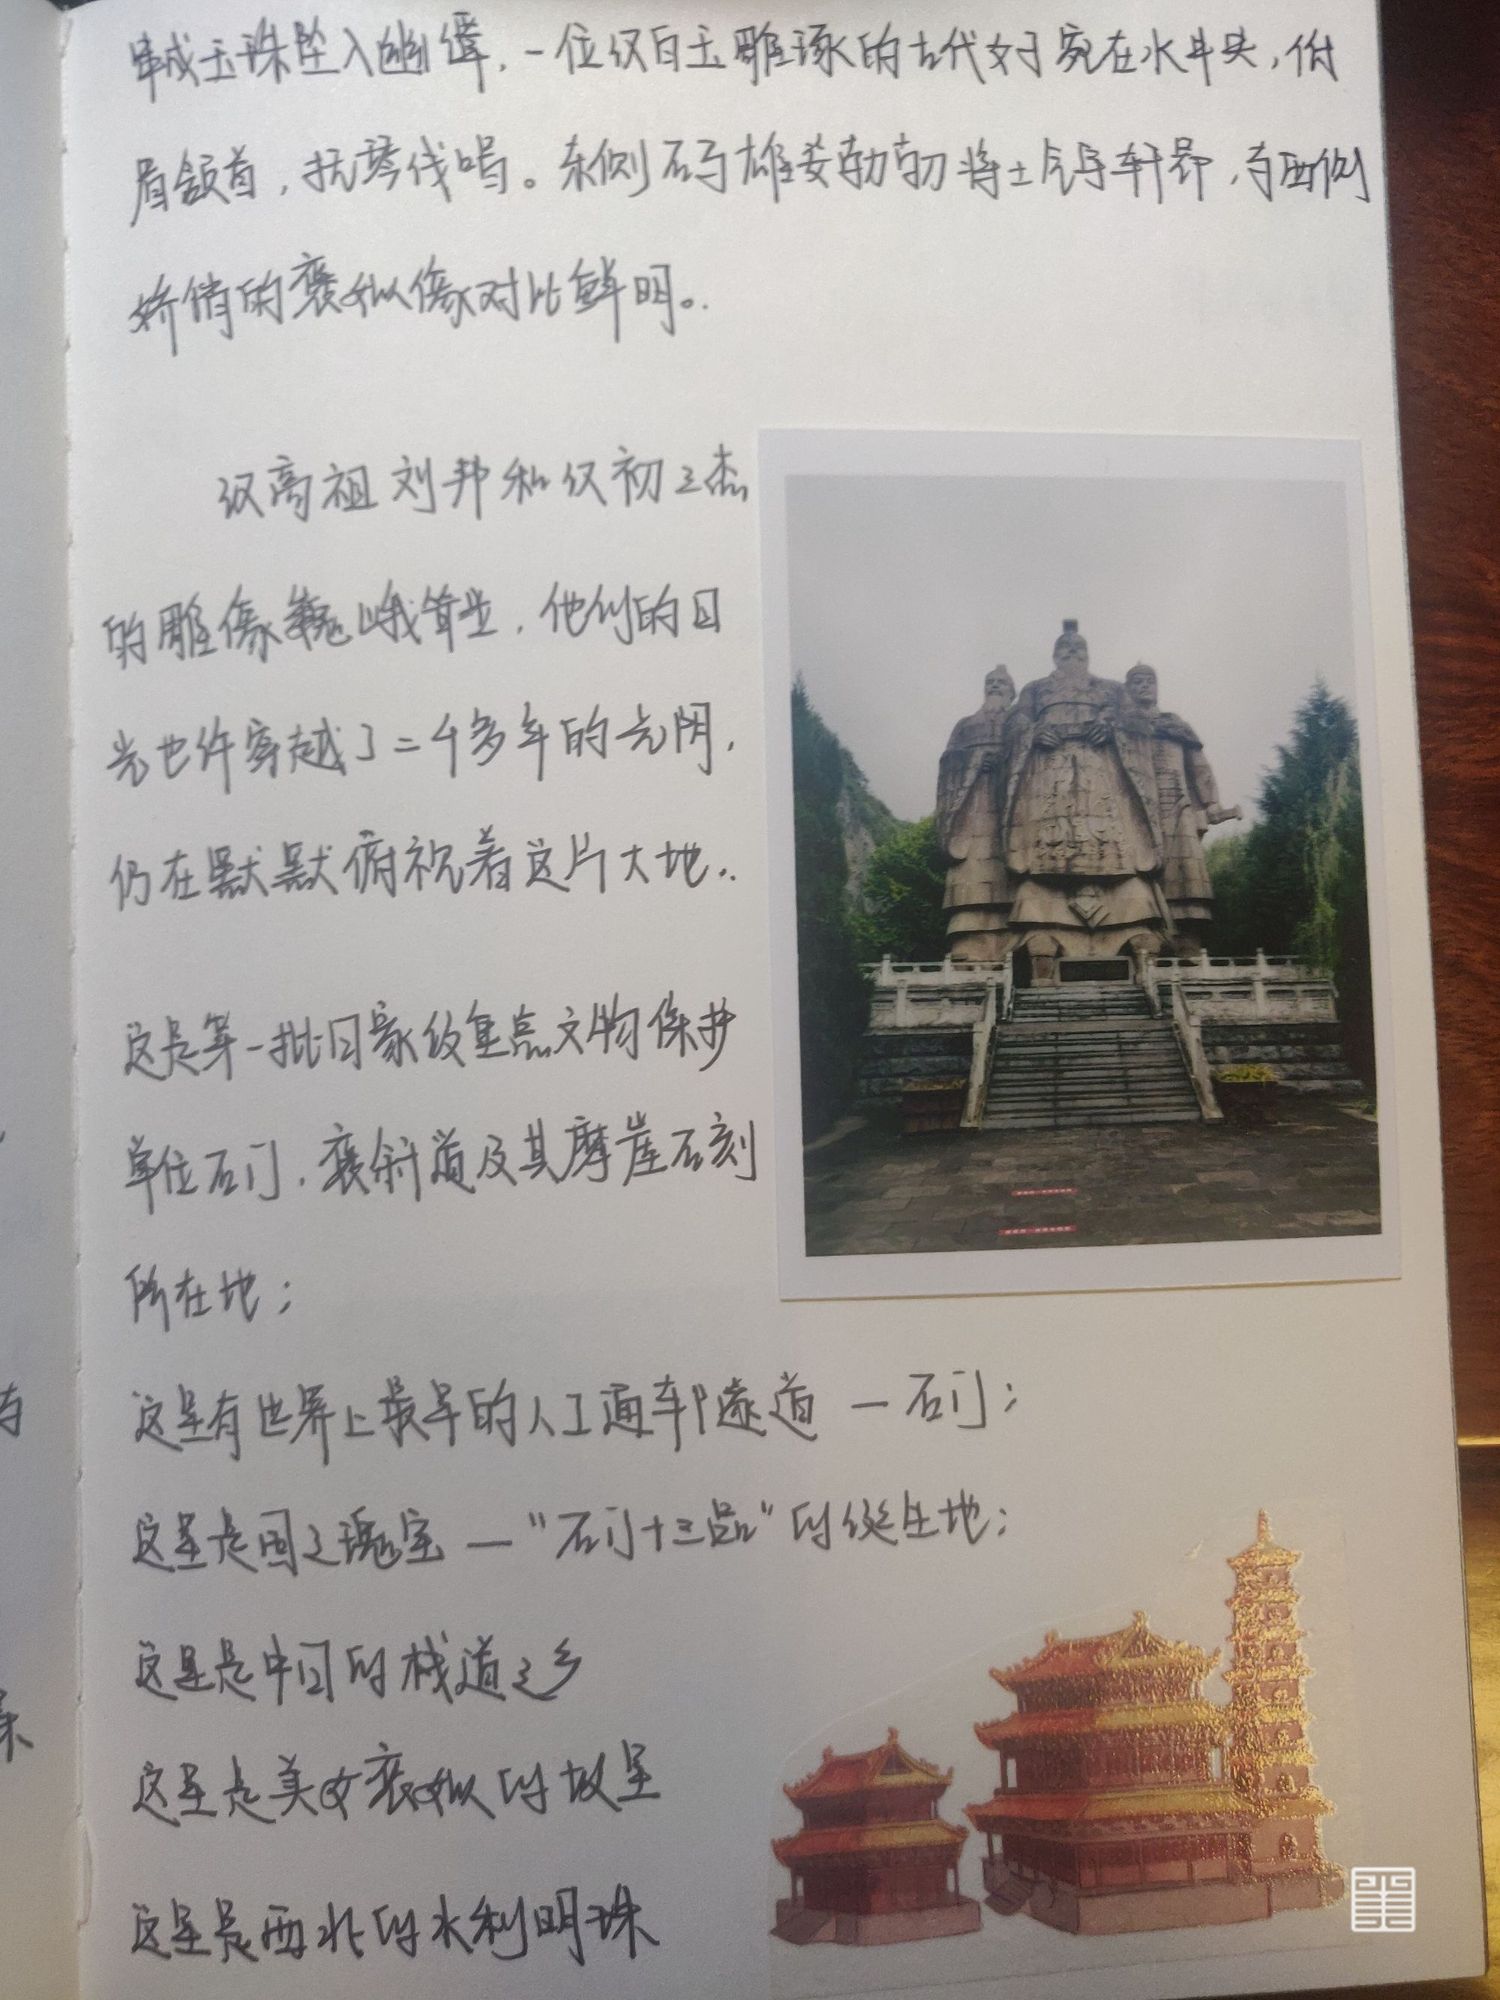 串成玉珠坠入幽潭，一位汉白玉雕琢的古代女子宛在水中央，俯
眉颔首，抚琴伐唱。东侧石马雄姿勃勃将士气宇轩昂，与西侧
娇俏的褒姒像对比鲜明。
汉高祖刘邦和汉初三杰
的雕像巍峨耸立，他们的目
光也许穿越了二千多年的光阴，
仍在默默俯视着这片大地..
这是第一批国家级重点文物保护
单位石门、褒斜道及其摩崖石刻
所在地；
这里有世界上最早的人工通车隧道 — 石门；
这里是国之瑰宝 — “石门十三品”的诞生地；
这里是中国的栈道之乡
这里是美女褒姒的故里
这里是西北的水利明珠